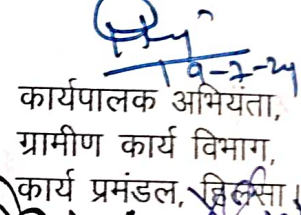 19-7-24
कार्यपालक अभियंता,
ग्रामीण कार्य विभाग,
कार्य प्रमंडल, हिलसा।